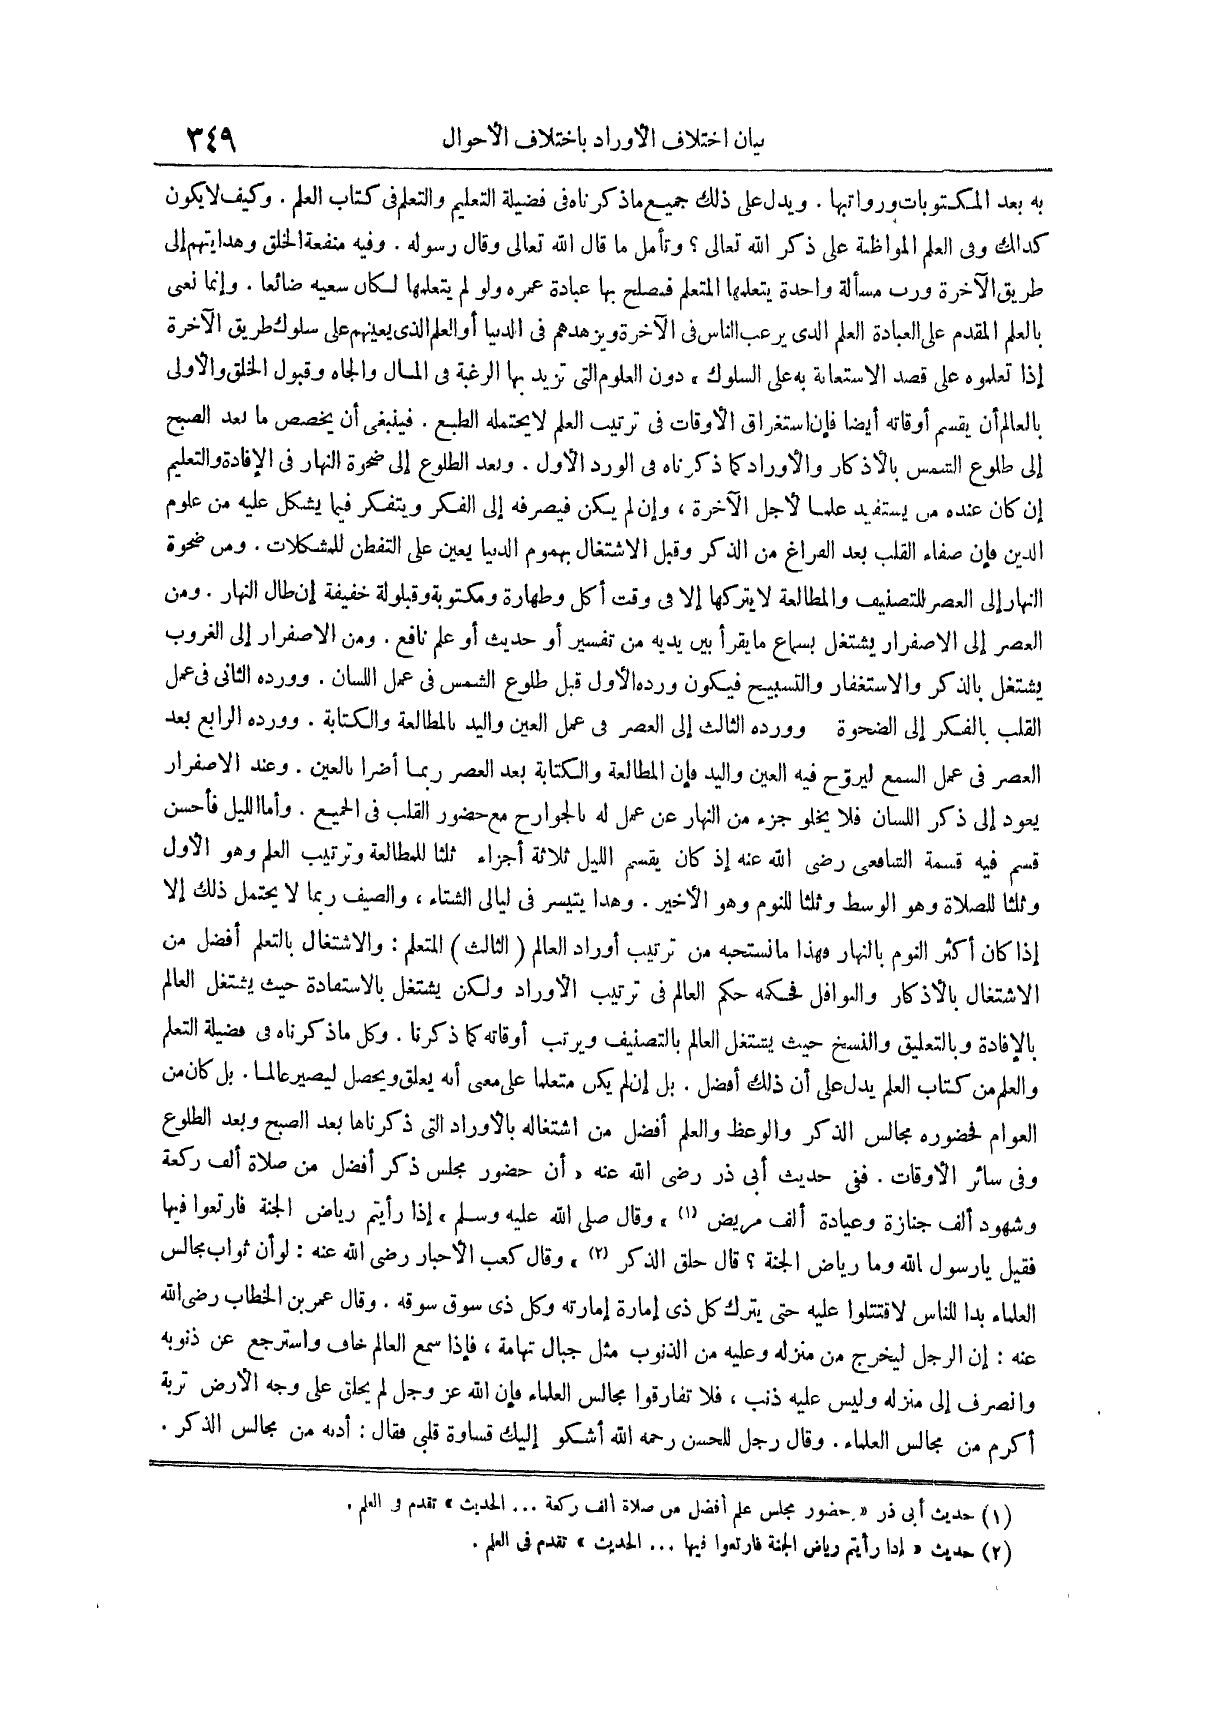 بيان اختلاف الأوراد باختلاف الأحوال ٣٤٩
به بعد المكتوبات ورواتبها . ويدل على ذلك جميع ماذكرناه فى فضيلة التعليم والتعلم فى كتاب العلم . وكيف لا يكون
كذلك وفى العلم المواظبة على ذكر الله تعالى ؟ وتأمل ما قال الله تعالى وقال رسوله . وفيه منفعة الخلق وهدايتهم إلى
طريق الآخرة ورب مسألة واحدة يتعلمها المتعلم فيصلح بها عبادة عمره ولو لم يتعلمها لكان سعيه ضائعا . وإنما نعنى
بالعلم المقدم على العبادة العلم الذى يرغب الناس فى الآخرة ويزهدهم فى الدنيا أو العلم الذى يعينهم على سلوك طريق الآخرة
إذا تعلموه على قصد الاستعانة به على السلوك ، دون العلوم التى تزيد بها الرغبة فى المال والجاه وقبول الخلق والأولى
بالعالم أن يقسم أوقاته أيضا فإن استغراق الأوقات فى ترتيب العلم لا يحتمله الطبع . فينبغى أن يخصص ما بعد الصبح
إلى طلوع الشمس بالأذكار والأوراد كما ذكرناه فى الورد الأول . وبعد الطلوع إلى ضحوة النهار فى الإفادة والتعليم
إن كان عنده من يستفيد علما لأجل الآخرة ، وإن لم يكن فيصرفه إلى الفكر ويتفكر فيما يشكل عليه من علوم
الدين فإن صفاء القلب بعد الفراغ من الذكر وقبل الاشتغال بهموم الدنيا يعين على التفطن للمشكلات . ومن ضحوة
النهار إلى العصر للتصنيف والمطالعة لا يتركها إلا فى وقت أكل وطهارة ومكتوبة وقيلولة خفيفة إن طال النهار . ومن
العصر إلى الاصفرار يشتغل بسماع ما يقرأ بين يديه من تفسير أو حديث أو علم نافع . ومن الاصفرار إلى الغروب
يشتغل بالذكر والاستغفار والتسبيح فيكون ورده الأول قبل طلوع الشمس فى عمل اللسان . وورده الثانى فى عمل
القلب بالفكر إلى الضحوة وورده الثالث إلى العصر فى عمل العين واليد بالمطالعة والكتابة . وورده الرابع بعد
العصر فى عمل السمع ليروّح فيه العين واليد فإن المطالعة والكتابة بعد العصر ربما أضرا بالعين . وعند الاصفرار
يعود إلى ذكر اللسان فلا يخلو جزء من النهار عن عمل له بالجوارح مع حضور القلب فى الجميع . وأما الليل فأحسن
قسم فيه قسمة الشافعى رضى الله عنه إذ كان يقسم الليل ثلاثة أجزاء ثلثا للمطالعة وترتيب العلم وهو الأول
وثلثا للصلاة وهو الوسط وثلثا للنوم وهو الأخير . وهذا يتيسر فى ليالى الشتاء ، والصيف ربما لا يحتمل ذلك إلا
إذا كان أكثر النوم بالنهار فهذا ما نستحبه من ترتيب أوراد العالم ( الثالث ) المتعلم : والاشتغال بالتعلم أفضل من
الاشتغال بالأذكار والنوافل فحكمه حكم العالم فى ترتيب الأوراد ولكن يشتغل بالاستفادة حيث يشتغل العالم
بالإفادة وبالتعليق والنسخ حيث يشتغل العالم بالتصنيف ويرتب أوقاته كما ذكرنا . وكل ماذكرناه فى فضيلة التعلم
والعلم من كتاب العلم يدل على أن ذلك أفضل . بل إن لم يكن متعلما على معنى أنه يعلق ويحصل ليصير عالما . بل كان من
العوام فحضوره مجالس الذكر والوعظ والعلم أفضل من اشتغاله بالأوراد التى ذكرناها بعد الصبح وبعد الطلوع
وفى سائر الأوقات . ففى حديث أبى ذر رضى الله عنه « أن حضور مجلس ذكر أفضل من صلاة ألف ركعة
وشهود ألف جنازة وعيادة ألف مريض (١) » وقال صلى الله عليه وسلم « إذا رأيتم رياض الجنة فارتعوا فيها
فقيل يارسول الله وما رياض الجنة ؟ قال حلق الذكر (٢) » وقال كعب الأحبار رضى الله عنه : لو أن ثواب مجالس
العلماء بدا للناس لاقتتلوا عليه حتى يترك كل ذى إمارة إمارته وكل ذى سوق سوقه . وقال عمر بن الخطاب رضى الله
عنه : إن الرجل ليخرج من منزله وعليه من الذنوب مثل جبال تهامة ، فإذا سمع العالم خاف واسترجع عن ذنوبه
وانصرف إلى منزله وليس عليه ذنب ، فلا تفارقوا مجالس العلماء فإن الله عز وجل لم يخلق على وجه الأرض تربة
أكرم من مجالس العلماء . وقال رجل للحسن رحمه الله أشكو إليك قساوة قلبى فقال : أدنه من مجالس الذكر .
(١) حديث أبى ذر « حضور مجلس علم أفضل من صلاة ألف ركعة ... الحديث » تقدم فى العلم .
(٢) حديث « إذا رأيتم رياض الجنة فارتعوا فيها ... الحديث » تقدم فى العلم .